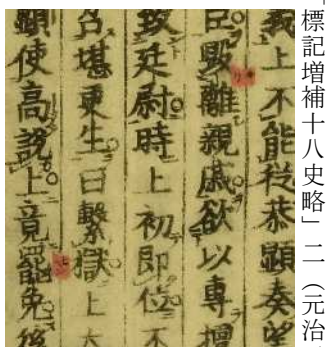 標記増補十八史略」二（元治
義上不能從恭顯奏望
臣毀離親戚欲以專擅
致廷尉時上初即位不
召堪更生曰繫獄上大
顯使高說上竟罷免後